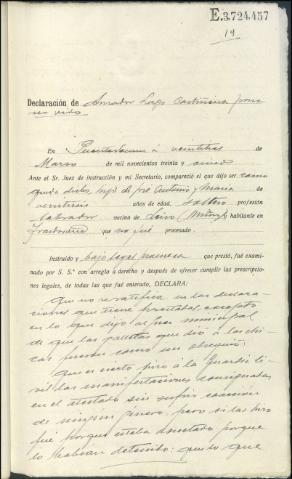 E.3.724.457
19
Declaración de Amador Lago
ser oido
En Puentedeume a veintitres de
Marzo de mil novecientos treinta y cinco
Ante el Sr. Juez de Instrucción y mi Secretario, compareció el que dijo ser como
queda dicho, hijo de José Antonio y Maria de
veintiseis años de edad, soltero profesión
labrador vecino de habitante en
que no fué procesado.
Instruído y bajo legal que prestó, fué exami-
nado por S. S.ª con arreglo a derecho y después de ofrecer cumplir las prescripcio-
nes legales, de todas las que fué enterado, DECLARA:
Que se ratifica en las declara-
ciones que tiene prestadas, excepto
en lo que dijo al Juez municipal
de que las pesetas que dió a las chi-
cas fuesen como un obsequio.
Que es cierto hizo a la Guardia Ci-
vil las manifestaciones consignadas
en el atestado sin sufrir coaccion
de ningún género, pero si las hizo
fué porque estaba asustado porque
lo habian detenido; puesto que